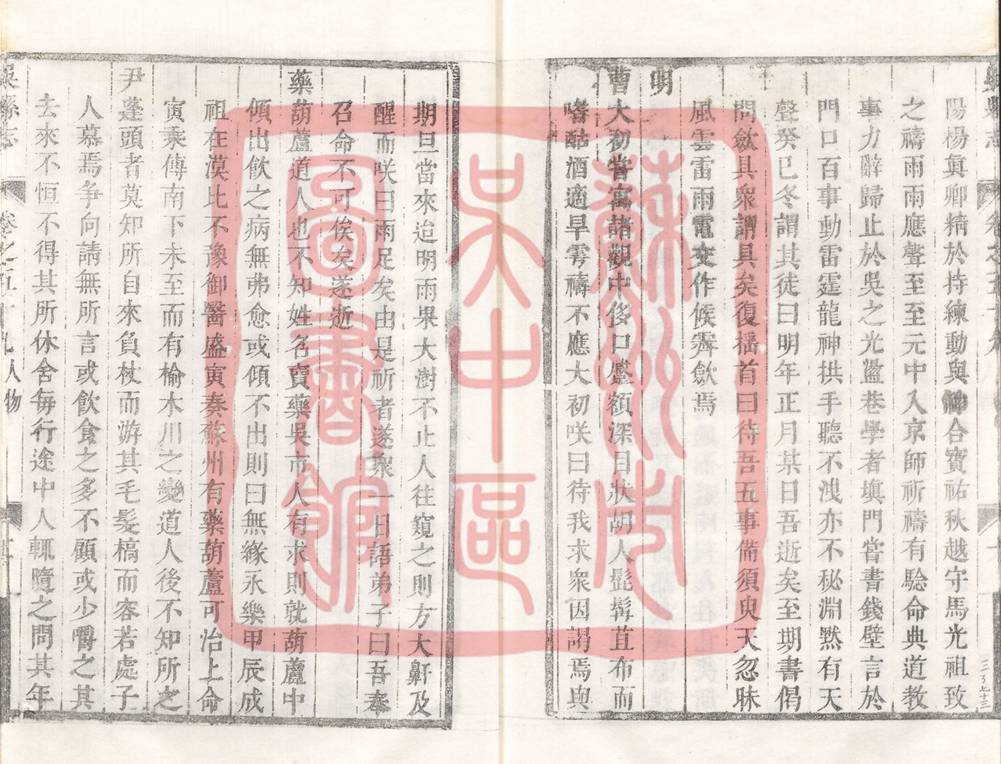 陽楊眞卿精於持練動與神合寶祐秋越守馬光祖致
之禱雨雨應聲至至元中入京師祈禱有驗命典道教
事力辭歸止於吳之光盖巷學者填門嘗書錢壁言於
門口百事動雷霆龍神拱手聽不洩亦不秘淵黙有天
聲癸巳冬謂其徒曰明年正月某日吾逝矣至期書偈
問歛具衆謂具矣復揺首曰待吾五事備須臾天忽昧
風雲雷雨電交作候霽歛焉
明
曹大初嘗寓諸觀中侈口蹙額深目狀胡人髭髯苴布而
嗜酤酒適旱雩禱不應大初咲曰待我求衆因謁焉與
期旦當來迨明雨果大澍不止人往窺之則方大鼾及
醒而咲曰雨足矣由是祈者遂衆一日語弟子曰吾奉
召命不可俟矣遂逝
藥葫蘆道人也不知姓名賣藥吳市人有求則就葫蘆中
傾出飮之病無弗愈或傾不出則曰無緣永樂甲辰成
祖在漠北不豫御醫盛寅奏蘇州有藥葫蘆可治上命
寅乘傳南下未至而有榆木川之變道人後不知所之
尹蓬頭者莫知所自來負杖而游其毛髮槁而容若處子
人慕焉爭向請無所言或飮食之多不顧或少嚼之其
去來不恒不得其所休舍每行途中人輒隨之問其年
吳縣志 卷之五十九 人物
蘇州市
吳中區
圖書館